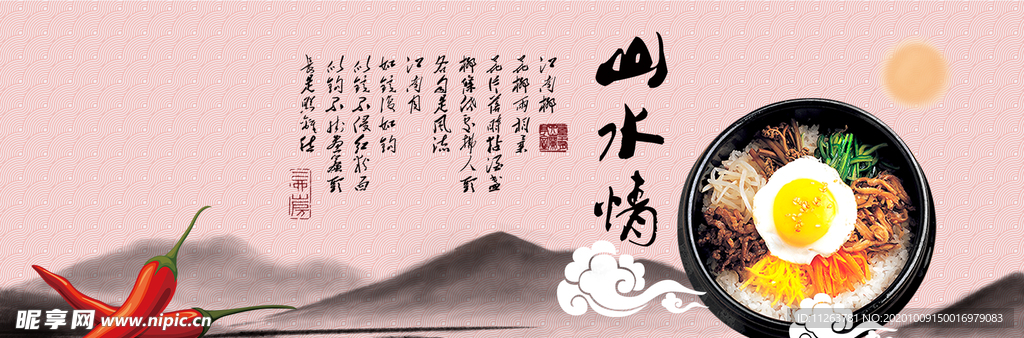 山水情
江南柳
花柳两相柔
花片落时黏酒盏
柳条低处拂人头
各自是风流
江南月
如镜复如钩
似镜不侵红粉面
似钩不挂画帘头
长是照离愁
昵享网 www.nipic.cn
ID:11263781 NO:20201009150016979083